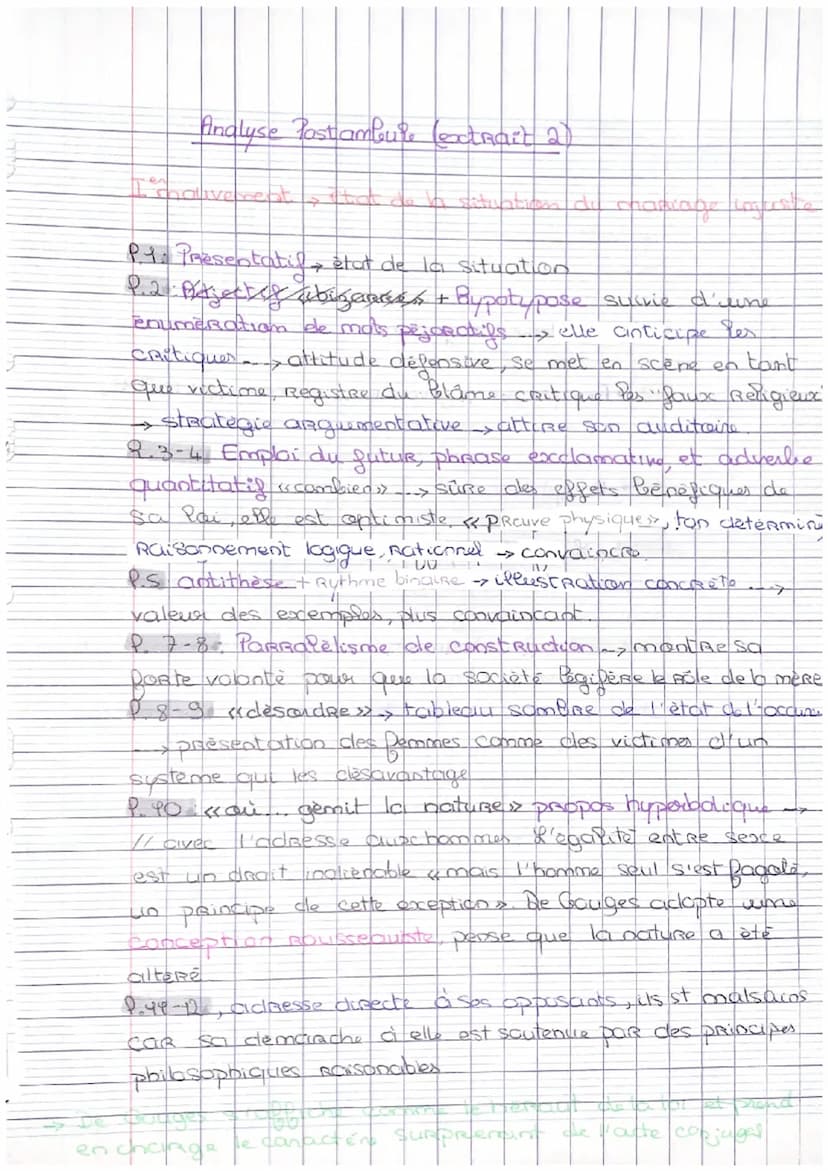 Analyse Postambule (extrait 2)
Ier mouvement → état de la situation du mariage injuste
l.1: Présentatif → état de la situation
l.2: + hypotypose suivie d'une
énumération de mots péjoratifs --→ elle anticipe les
critiques --→ attitude défensive, se met en scène en tant
que victime, Registre du blâme critique les "faux Religieux"
→ stratégie argumentative → attire son auditoire.
l.3-4 Emploi du futur, phrase exclamative, et adverbe
quantitatif «combien» --→ sûre des effets bénéfiques de
sa loi, elle est optimiste, «preuve physique», ton déterminé
Raisonnement logique, rationnel → convaincre
l.5 antithèse + Rythme binaire → illustration concrète --→
valeur des exemples, plus convaincant.
l. 7-8: Parralèlisme de construction --→ montre sa
forte volonté pour que la société légifère le rôle de la mère
l.8-9 «désordre» → tableau sombre de l'état de l'accu
--→ présentation des femmes comme des victimes d'un
système qui les désavantage
l.10: «où... gémit la nature» propos hyperbolique --→
// avec l'adresse aux hommes l'égalité entre sexe
est un droit inaliénable «mais l'homme seul s'est fagoté,
un principe de cette exception». De Gouges adopte une
conception rousseauiste, pense que la nature a été
altéré
l.11-12, adresse directe à ses opposants, ils st malsaços
car sa démarche à elle est soutenue par des principes
philosophiques raisonables
→ De Gouges s'affiche comme le héraut de la loi et prend
en charge le caractère de l'acte conjugal